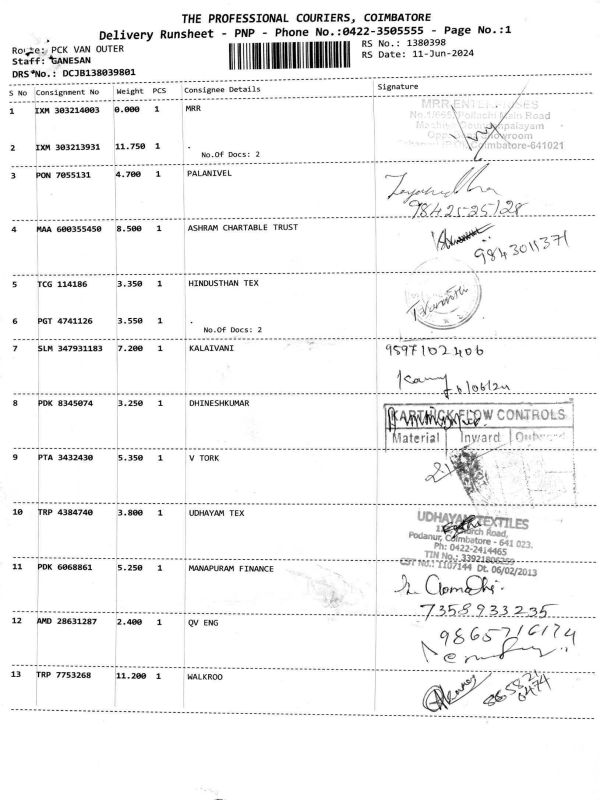 THE PROFESSIONAL COURIERS, COIMBATORE
Delivery Runsheet - PNP - Phone No.:0422-3505555 - Page No.:1
Route: PCK VAN OUTER
RS No.: 1380398
Staff: GANESAN
RS Date: 11-Jun-2024
DRS No.: DCJB138039801
S No Consignment No Weight PCS Consignee Details Signature
1 IXM 303214003 0.000 1 MRR
MRR ENTERPRISES
Pollachi Main Road
2 IXM 303213931 11.750 1 .
Coimbatore-641021
No.Of Docs: 2
3 PON 7055131 4.700 1 PALANIVEL
98425-25128
4 MAA 600355450 8.500 1 ASHRAM CHARTABLE TRUST
9843011371
5 TCG 114186 3.350 1 HINDUSTHAN TEX
6 PGT 4741126 3.550 1 .
No.Of Docs: 2
7 SLM 347931183 7.200 1 KALAIVANI
9597102406
8 PDK 8345074 3.250 1 DHINESHKUMAR
KARTHICK FLOW CONTROLS
Material Inward Outward
9 PTA 3432430 5.350 1 V TORK
10 TRP 4384740 3.800 1 UDHAYAM TEX
UDHAYAM TEXTILES
Church Road,
Podanur, Coimbatore - 641 023.
Ph: 0422-2414465
TIN No.: 33921806259
CST No.: 1107144 Dt. 06/02/2013
11 PDK 6068861 5.250 1 MANAPURAM FINANCE
7358933235
12 AMD 28631287 2.400 1 QV ENG
9865716174
13 TRP 7753268 11.200 1 WALKROO